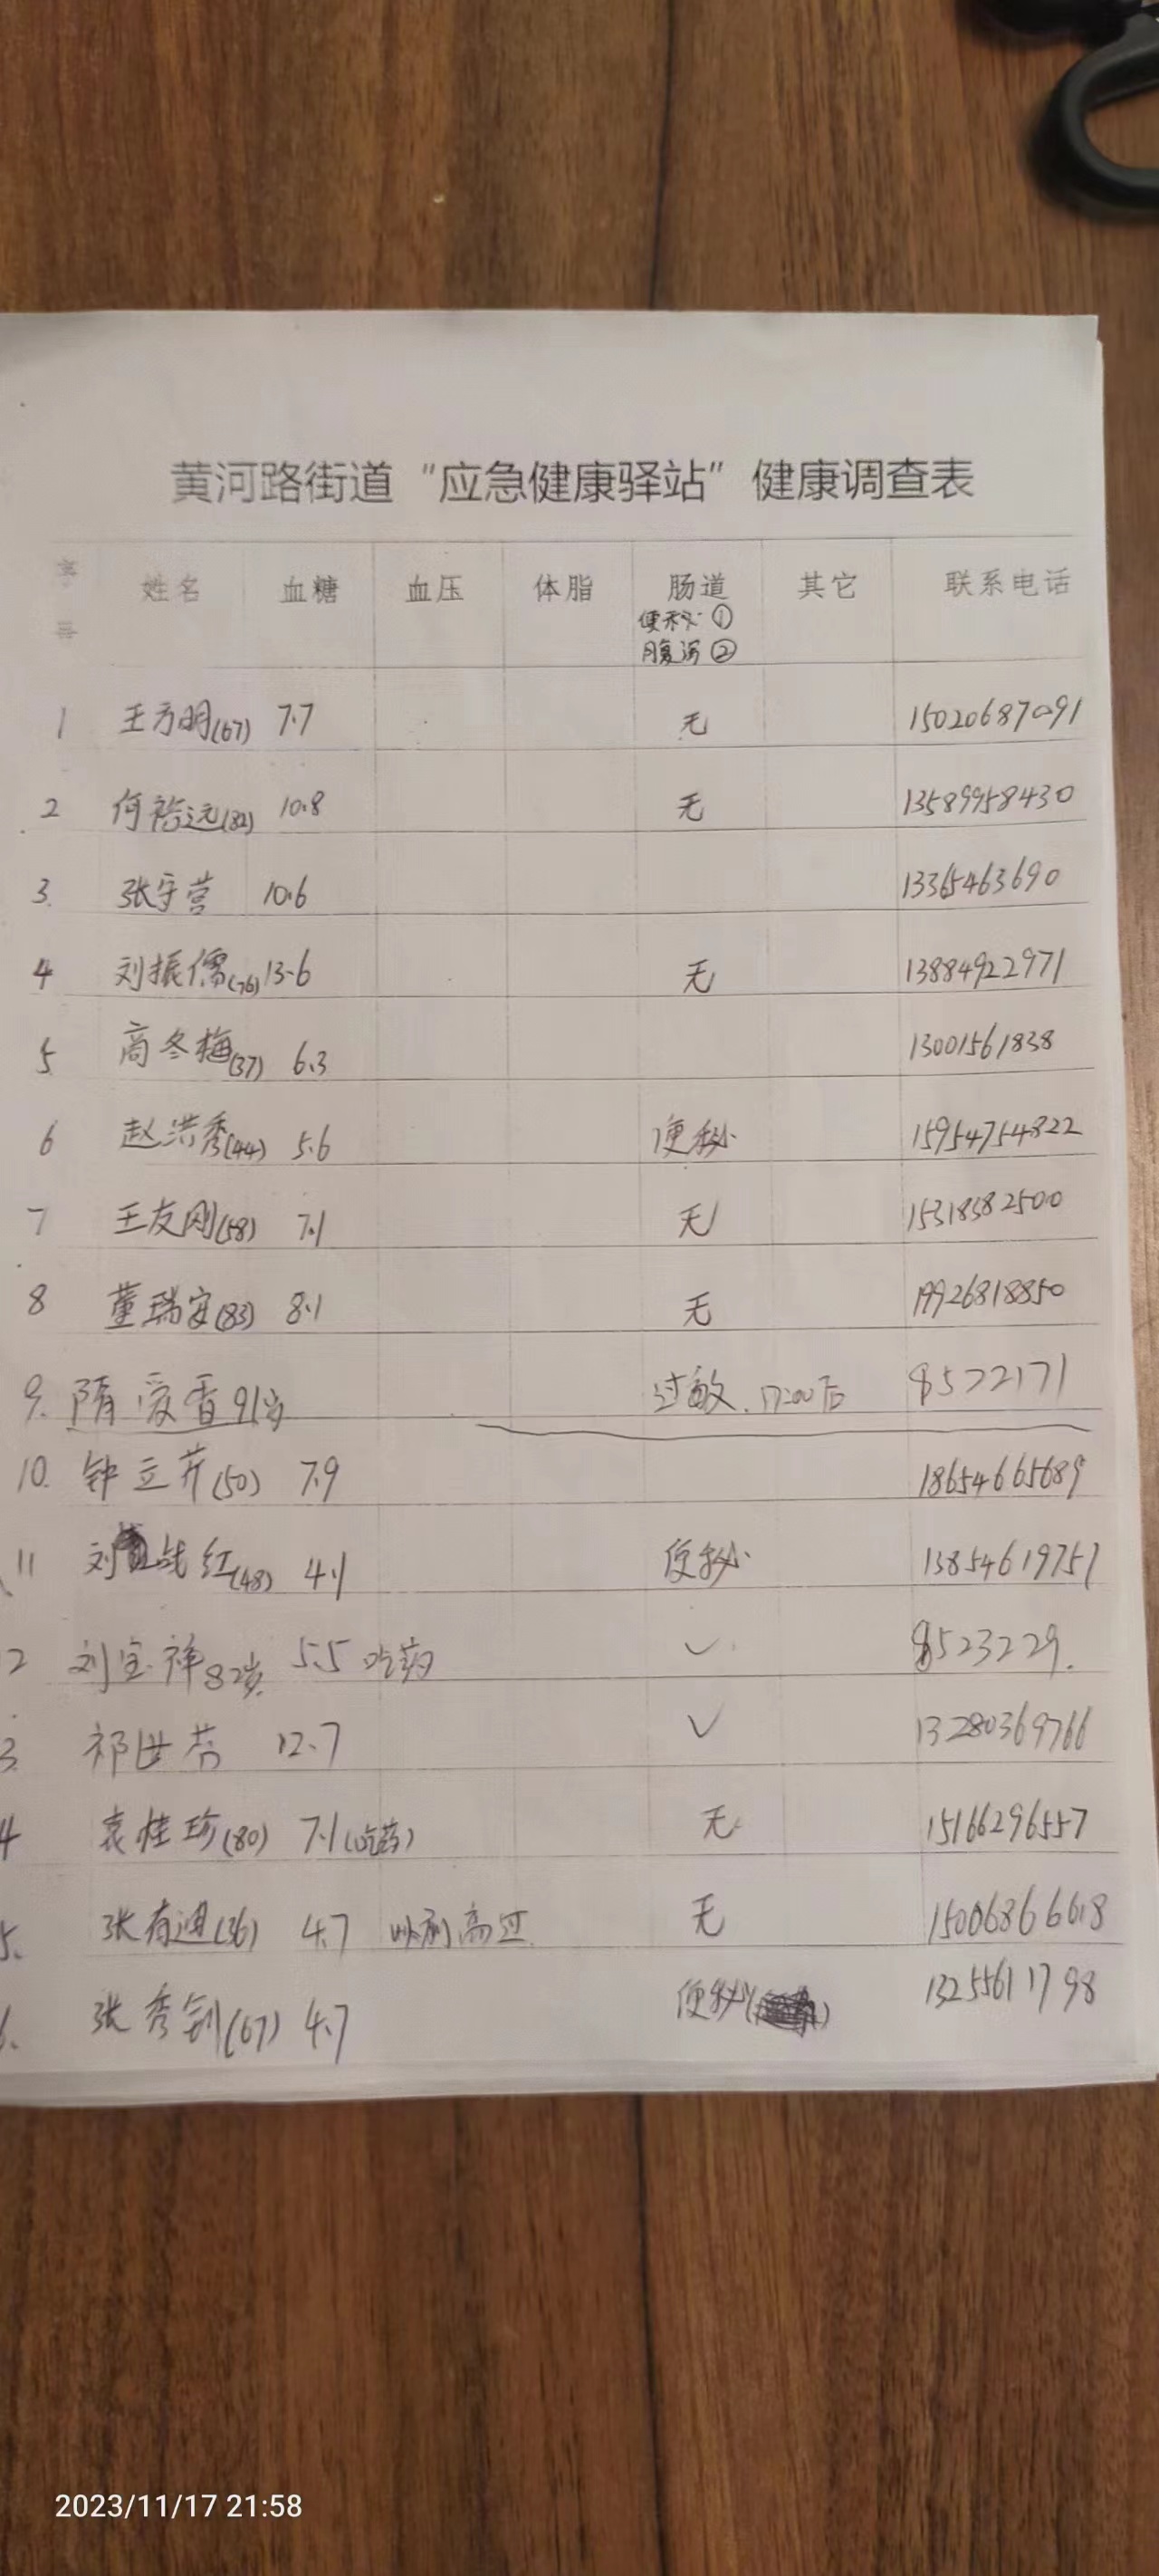 黄河路街道“应急健康驿站”健康调查表
序号 姓名 血糖 血压 体脂 肠道 其它 联系电话
便秘①
腹泻②
1 王方明(67) 7.7 无 15020687091
2 何裕远(82) 10.8 无 13589958430
3. 张宇营 10.6 13365463690
4 刘振儒(76) 13.6 无 13884922971
5 高冬梅(37) 6.3 13001561838
6 赵洪秀(44) 5.6 便秘 15954754822
7 王友刚(58) 7.1 无 15318382500
8 董瑞安(83) 8.1 无 19926818850
9. 隋爱香91岁 过敏. 17:00后 8572171
10. 钟立芹(50) 7.9 18654665689
11 刘战红(48) 4.1 便秘 13854619757
2 刘宝祥82岁 5.5 吃药 ✓ 8523229.
3. 祁世芬 12.7 ✓ 13280369766
4 袁桂珍(80) 7.1(吃药) 无 15166296557
5. 张有迪(36) 4.7 高过 无 15006866618
6. 张秀钊(67) 4.7 便秘( ) 13255611798
2023/11/17 21:58